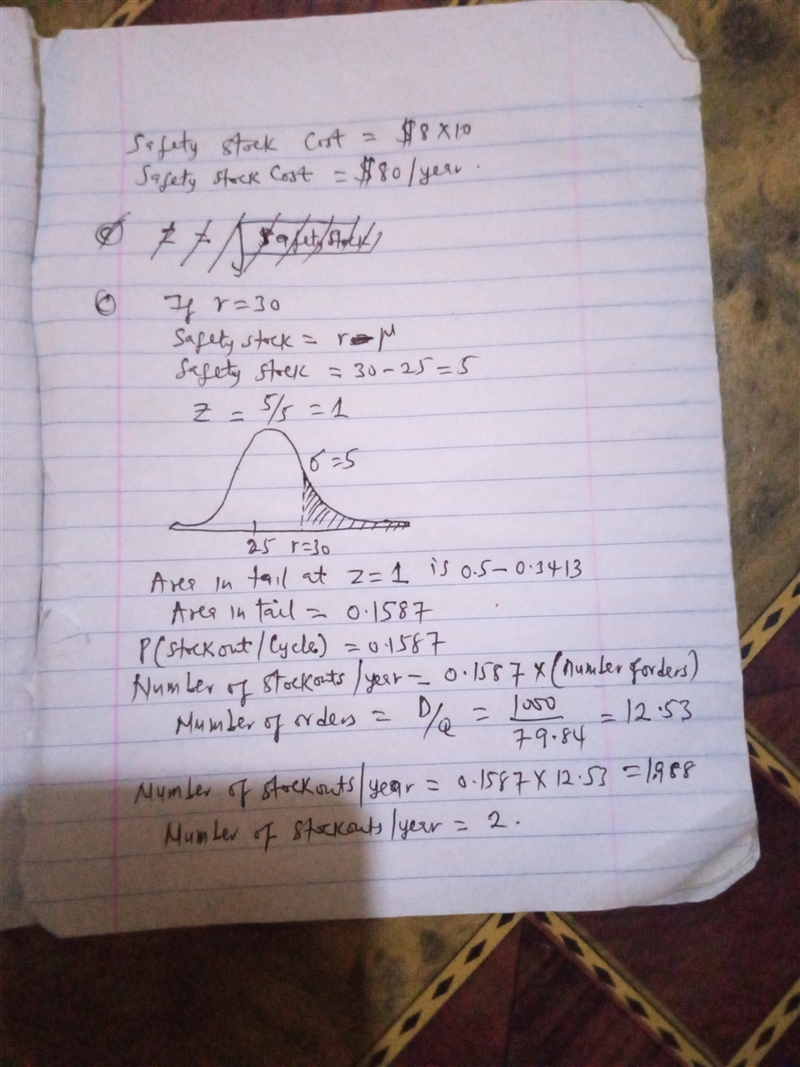 Safety stock Cost = $8 × 10
Safety stock Cost = $80/year.
If r = 30
Safety stock = r - μ
Safety stock = 30 - 25 = 5
Z = 5/5 = 1
σ = 5
25 r=30
Area in tail at Z = 1 is 0.5 - 0.3413
Area in tail = 0.1587
P(stockout/Cycle) = 0.1587
Number of stockouts/year = 0.1587 × (number of orders)
Number of orders = D/Q = 1000/79.84 = 12.53
Number of stockouts/year = 0.1587 × 12.53 = 1.988
Number of stockouts/year = 2.